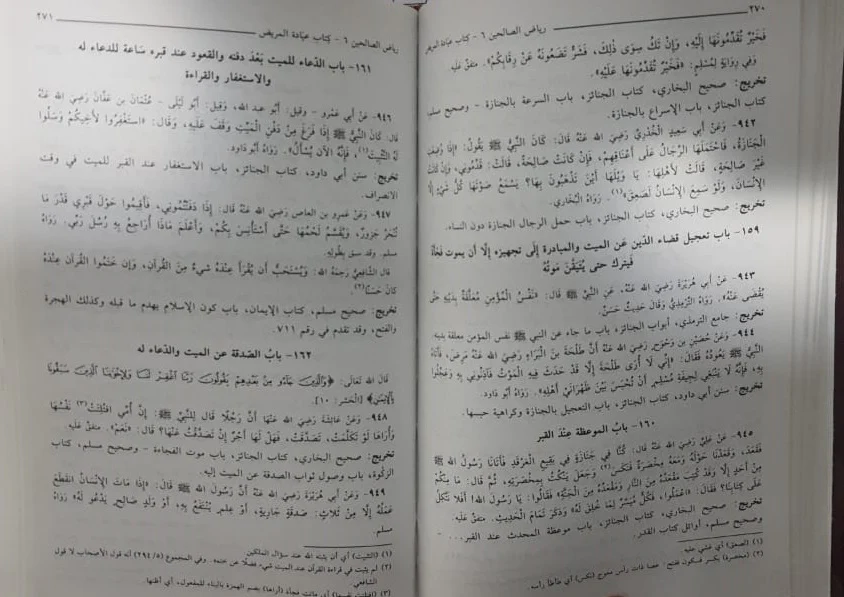 ٢٧٠
رياض الصالحين ٦ - كتاب عيادة المريض
فَخَيْرٌ تُقَدِّمُونَهَا إِلَيْهِ، وَإِنْ تَكُ سِوَى ذٰلِكَ، فَشَرٌّ تَضَعُونَهُ عَنْ رِقَابِكُمْ». متفقٌ عَلَيهِ.
وَفِي رِوَايَةٍ لِمُسْلِمٍ: «فَخَيْرٌ تُقَدِّمُونَهَا عَلَيْهِ».
تخريج: صحيح البخاري، كتاب الجنائز، باب السرعة بالجنازة - وصحيح مسلم،
كتاب الجنائز، باب الإسراع بالجنازة.
٩٤٢- وَعَنْ أَبِي سَعِيدٍ الْخُدْرِيِّ رَضِيَ الله عَنْهُ قَالَ: كَانَ النَّبِيُّ ﷺ يَقُولُ: «إِذَا وُضِعَتِ
الْجَنَازَةُ، فَاحْتَمَلَهَا الرِّجَالُ عَلَى أَعْنَاقِهِمْ، فَإِنْ كَانَتْ صَالِحَةً، قَالَتْ: قَدِّمُونِي، وَإِنْ كَانَتْ
غَيْرَ صَالِحَةٍ، قَالَتْ لأَهْلِهَا: يَا وَيْلَهَا أَيْنَ تَذْهَبُونَ بِهَا؟ يَسْمَعُ صَوْتَهَا كُلُّ شَيْءٍ إِلَّا
الإِنْسَانَ، وَلَوْ سَمِعَ الإِنْسَانُ لَصَعِقَ»(١). رَوَاهُ الْبُخَارِي.
تخريج: صحيح البخاري، كتاب الجنائز، باب حمل الرجال الجنازة دون النساء.
١٥٩- باب تعجيل قضاء الدَّين عَن الميت والمبادرة إلَى تجهيزه إلَّا أن يموت فَجْأَةً
فَيترك حتى يُتَيَقَّنَ مَوْتُهُ
٩٤٣- عَنْ أَبِي هُرَيْرَةَ رَضِيَ الله عَنْهُ، عَنِ النَّبِيِّ ﷺ قَالَ: «نَفْسُ الْمُؤْمِنِ مُعَلَّقَةٌ بِدَيْنِهِ حَتَّى
يُقْضَى عَنْهُ». رَوَاهُ التِّرْمِذِيُّ وَقَالَ حَدِيثٌ حَسَنٌ.
تخريج: جامع الترمذي، أبواب الجنائز، باب ما جاء عن النبي ﷺ نفس المؤمن معلقة بدينه.
٩٤٤- وَعَنْ حُصَيْنِ بْنِ وَحْوَحٍ رَضِيَ الله عَنْهُ أَنَّ طَلْحَةَ بْنَ الْبَرَاءِ رَضِيَ الله عَنْهُ مَرِضَ، فَأَتَاهُ
النَّبِيُّ ﷺ يَعُودُهُ فَقَالَ: «إِنِّي لَا أُرَى طَلْحَةَ إِلَّا قَدْ حَدَثَ فِيهِ الْمَوْتُ فَآذِنُونِي بِهِ وَعَجِّلُوا
بِهِ، فَإِنَّهُ لَا يَنْبَغِي لِجِيفَةِ مُسْلِمٍ أَنْ تُحْبَسَ بَيْنَ ظَهْرَانَيْ أَهْلِهِ». رَوَاهُ أبو داود.
تخريج: سنن أبي داود، كتاب الجنائز، باب التعجيل بالجنازة وكراهية حبسها.
١٦٠- بابُ الموعظة عِنْدَ القبر
٩٤٥- عَنْ عَلِيٍّ رَضِيَ الله عَنْهُ قَالَ: كُنَّا فِي جَنَازَةٍ فِي بَقِيعِ الْغَرْقَدِ فَأَتَانَا رَسُولُ اللهِ ﷺ
فَقَعَدَ، وَقَعَدْنَا حَوْلَهُ وَمَعَهُ مِخْصَرَةٌ فَنَكَسَ(٢) وَجَعَلَ يَنْكُتُ بِمِخْصَرَتِهِ، ثُمَّ قَالَ: مَا مِنْكُمْ
مِنْ أَحَدٍ إِلَّا وَقَدْ كُتِبَ مَقْعَدُهُ مِنَ النَّارِ وَمَقْعَدُهُ مِنَ الْجَنَّةِ» فَقَالُوا: يَا رَسُولَ الله! أَفَلَا نَتَّكِلُ
عَلَى كِتَابِنَا؟ فَقَالَ: «اعْمَلُوا، فَكُلٌّ مُيَسَّرٌ لِمَا خُلِقَ لَهُ» وَذَكَرَ تَمَامَ الْحَدِيثِ. متفقٌ عَلَيهِ.
تخريج: صحيح البخاري، كتاب الجنائز، باب موعظة المحدث عند القبر، ... -
وصحيح مسلم، أوائل كتاب القدر.
(١) (لصعق) أي غشي عليه.
(٢) (مخصرة) بكسر فسكون ففتح: عصا ذات رأس معوج (نكس) أي طأطأ رأسه.
رياض الصالحين ٦ - كتاب عيادة المريض
٢٧١
١٦١- باب الدُّعاء للميت بَعْدَ دفنه والقعود عند قبره سَاعة للدعاء له
والاستغفار والقراءة
٩٤٦- عَنْ أَبِي عَمْرٍو - وقيل: أَبُو عبد الله، وَقِيل: أَبُو لَيْلَى - عُثْمَانَ بن عَفَّانَ رَضِيَ الله عَنْهُ
قال: كَانَ النَّبِيُّ ﷺ إِذَا فَرَغَ مِنْ دَفْنِ الْمَيِّتِ وَقَفَ عَلَيْهِ، وَقَالَ: «اسْتَغْفِرُوا لأَخِيكُمْ وَسَلُوا
لَهُ التَّثْبِيتَ(١)، فَإِنَّهُ الآنَ يُسْأَلُ». رَوَاهُ أبو دَاوُد.
تخريج: سنن أبي داود، كتاب الجنائز، باب الاستغفار عند القبر للميت في وقت
الانصراف.
٩٤٧- وَعَنْ عَمرِو بن العاص رَضِيَ الله عَنْهُ قَالَ: إِذَا دَفَنْتُمُونِي، فَأَقِيمُوا حَوْلَ قَبْرِي قَدْرَ مَا
تُنْحَرُ جَزُورٌ، وَيُقَسَّمُ لَحْمُهَا حَتَّى أَسْتَأْنِسَ بِكُمْ، وَأَعْلَمَ مَاذَا أُرَاجِعُ بِهِ رُسُلَ رَبِّي. رَوَاهُ
مسلم. وقد سبق بِطُولِهِ.
قال الشَّافِعِيُّ رَحِمَهُ الله: وَيُسْتَحَبُّ أَن يُقْرَأَ عِنْدَهُ شَيءٌ مِنَ القُرآنِ، وَإن خَتَمُوا القُرآن عِنْدَهُ
كانَ حَسَنًا(٢).
تخريج: صحيح مسلم، كتاب الإيمان، باب كون الإسلام يهدم ما قبله وكذلك الهجرة
والفتح، وقد تقدم في رقم ٧١١.
١٦٢- بابُ الصَّدقة عن الميت والدُّعاء له
قَالَ اللهُ تَعَالَى: ﴿وَٱلَّذِينَ جَآءُو مِنۢ بَعْدِهِمْ يَقُولُونَ رَبَّنَا ٱغْفِرْ لَنَا وَلِإِخْوَٰنِنَا ٱلَّذِينَ سَبَقُونَا
بِٱلْإِيمَٰنِ﴾ [الْحَشْر: ١٠].
٩٤٨- وَعَنْ عَائِشَةَ رَضِيَ الله عَنْهَا أَنَّ رَجُلًا قَالَ لِلنَّبِيِّ ﷺ: إِنَّ أُمِّي افْتُلِتَتْ(٣) نَفْسُهَا
وَأُرَاهَا لَوْ تَكَلَّمَتْ، تَصَدَّقَتْ، فَهَلْ لَهَا أَجْرٌ إِنْ تَصَدَّقْتُ عَنْهَا؟ قَالَ: «نَعَمْ». متفقٌ عَلَيهِ.
تخريج: صحيح البخاري، كتاب الجنائز، باب موت الفجاءة - وصحيح مسلم، كتاب
الزكوة، باب وصول ثواب الصدقة عن الميت إليه.
٩٤٩- وَعَنْ أَبِي هُرَيْرَةَ رَضِيَ الله عَنْهُ أَنَّ رَسُولَ اللهِ ﷺ قَالَ: «إِذَا مَاتَ الإِنْسَانُ انْقَطَعَ
عَمَلُهُ إِلَّا مِنْ ثَلَاثٍ: صَدَقَةٍ جَارِيَةٍ، أَوْ عِلْمٍ يُنْتَفَعُ بِهِ، أَوْ وَلَدٍ صَالِحٍ يَدْعُو لَهُ» رَوَاهُ
مسلم.
(١) (التثبيت) أي أن يثبته الله عند سؤال الملكين.
(٢) لم يثبت في قراءة القرآن عند الميت شيء فضلًا عن ختمه. وفي المجموع (٢٩٤/٥) أنه قول الأصحاب لا قول
الشافعي.
(٣) (افتلتت نفسها) أي ماتت فجأة (أراها) بضم الهمزة بالبناء للمفعول، أي أظنها.